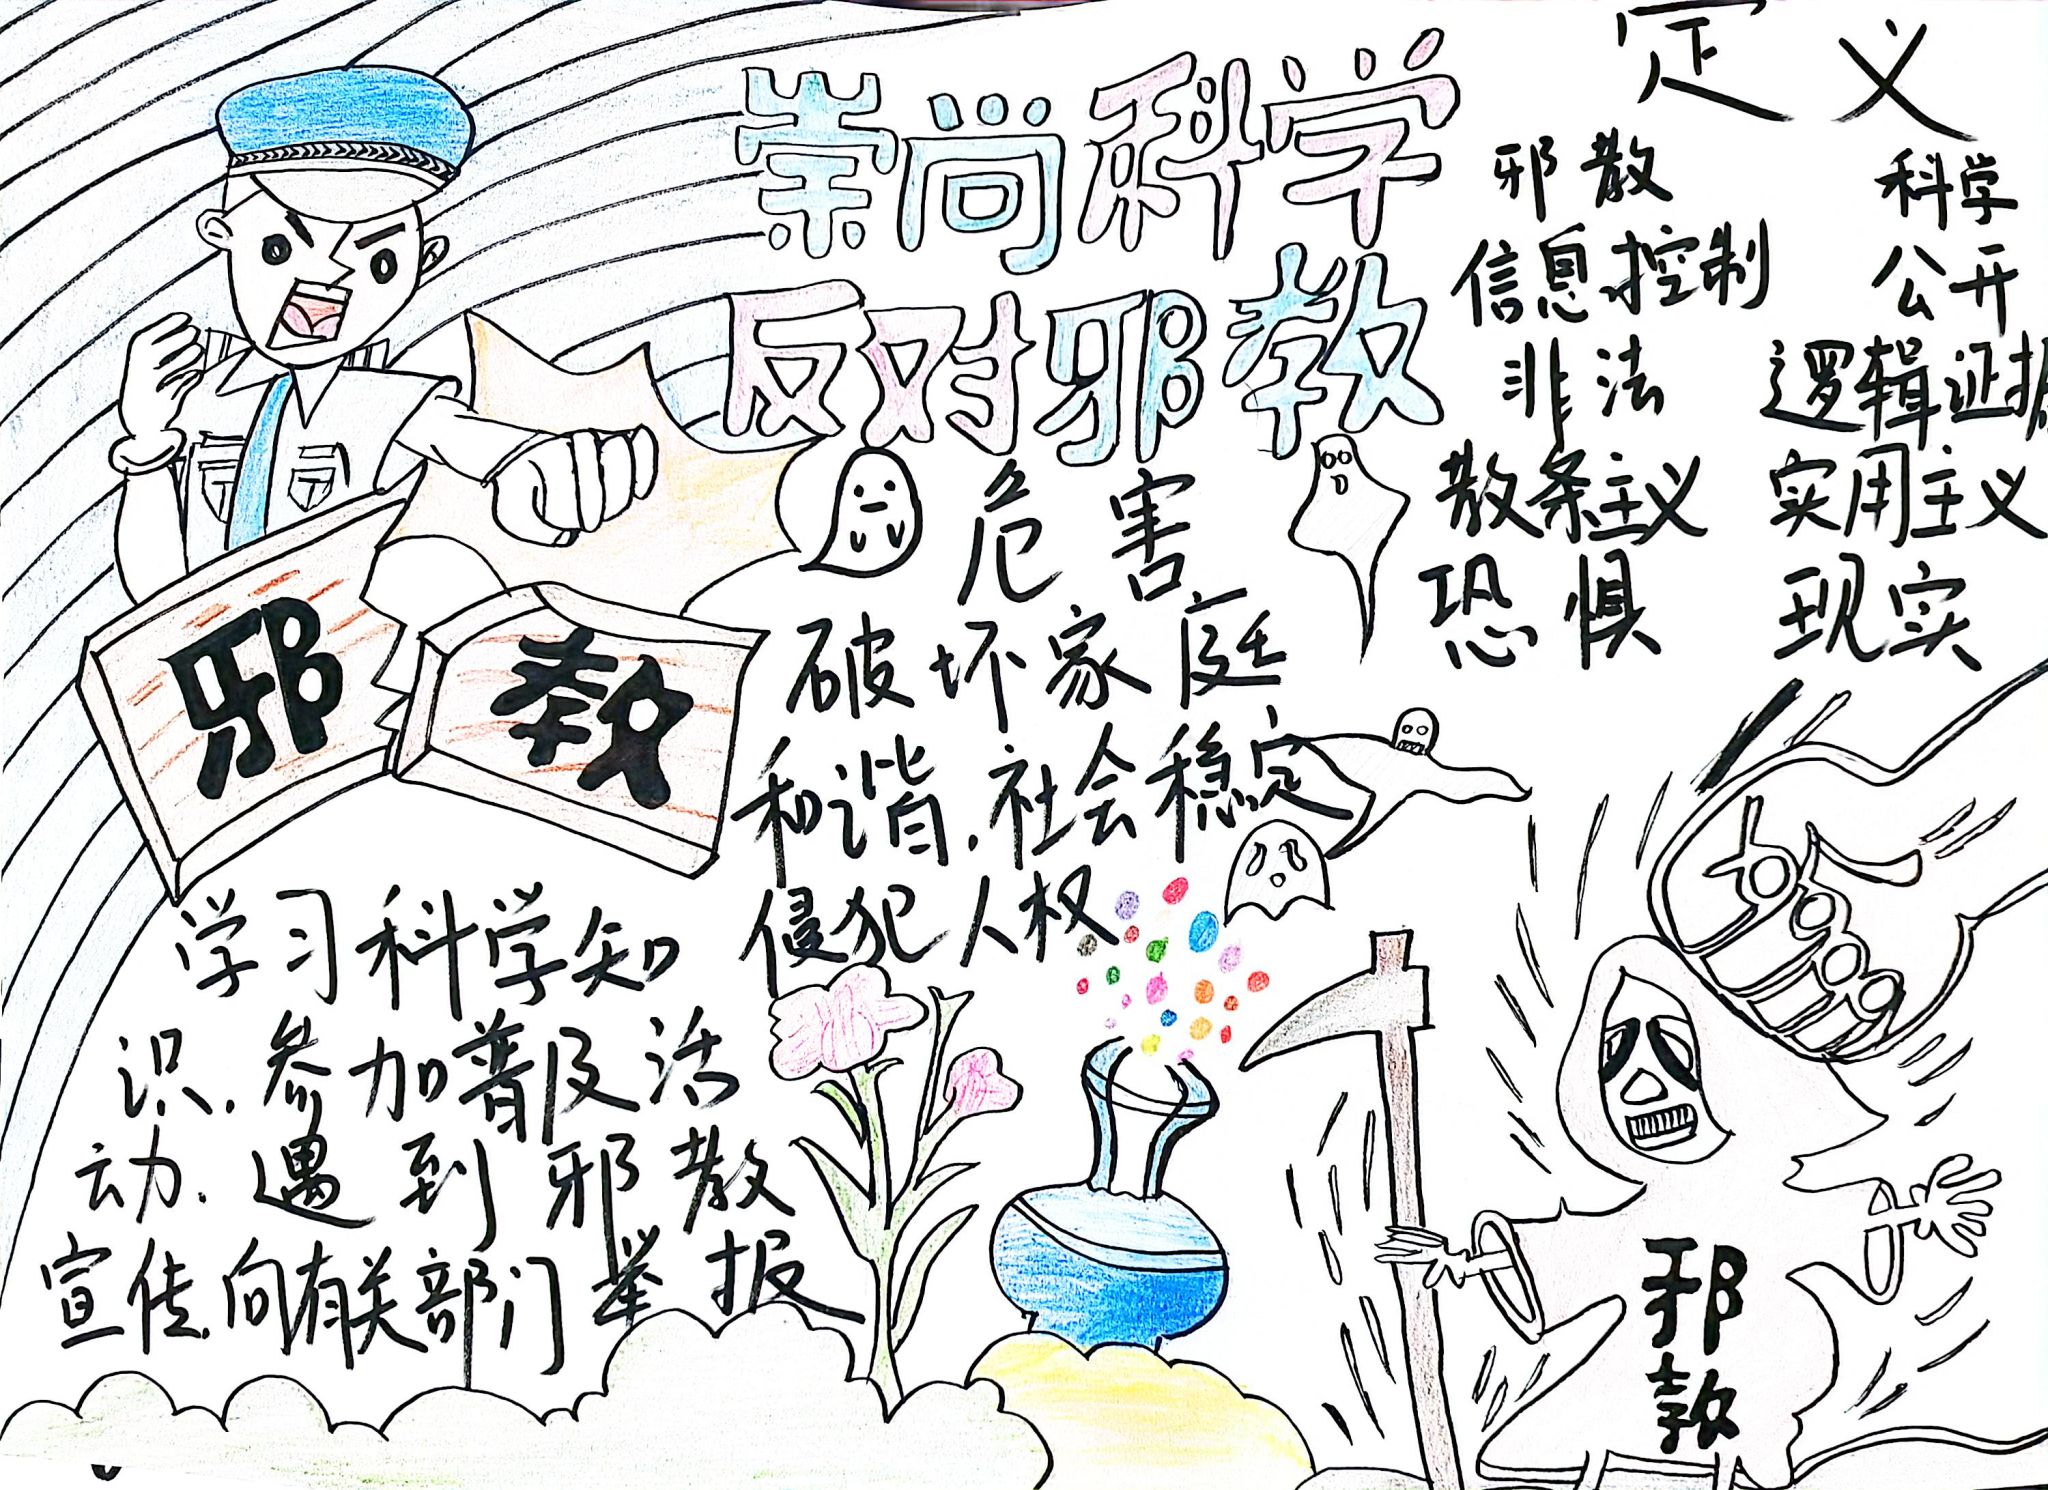 崇尚科学
反对邪教
定义
邪散 科学
信息控制 公开
非法 逻辑证据
散条主义 实用主义
恐惧 现实
危害
破坏家庭
和谐.社会稳定
侵犯人权
邪教
学习科学知
识.参加普及活
动.遇到邪散
宣传.向有关部门举报
邪
教